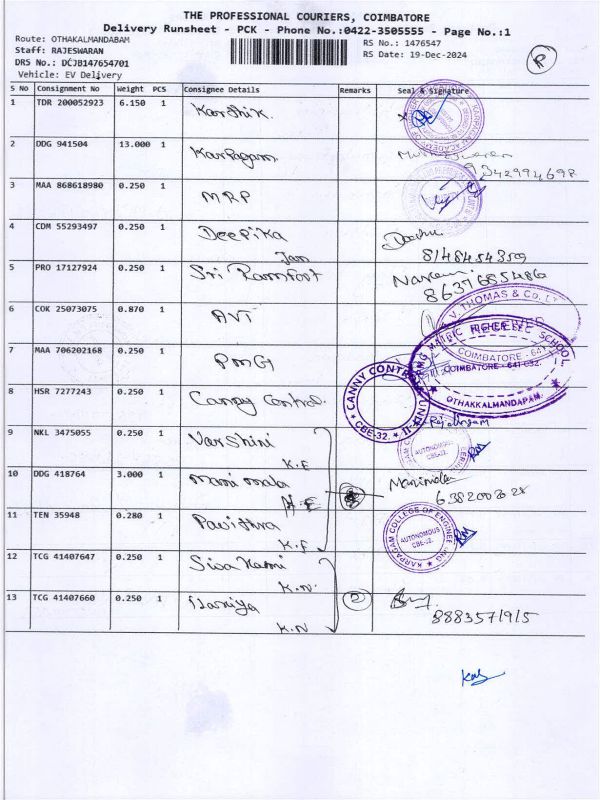 THE PROFESSIONAL COURIERS, COIMBATORE
Delivery Runsheet - PCK - Phone No.:0422-3505555 - Page No.:1
Route: OTHAKALMANDABAM
RS No.: 1476547
Staff: RAJESWARAN
RS Date: 19-Dec-2024
DRS No.: DCJB147654701
Vehicle: EV Delivery
S No Consignment No Weight PCS Consignee Details Remarks Seal & Signature
1 TDR 200052923 6.150 1 Karthik.
2 DDG 941504 13.000 1 Karpagam
3 MAA 868618980 0.250 1 MRP
4 CDM 55293497 0.250 1 Deepika
8148454359
5 PRO 17127924 0.250 1 Sri Ramfost
8637685486
6 COK 25073075 0.870 1 AVT
V. THOMAS & Co.
COIMBATORE - 641 032.
OTHAKKALMANDAPAM.
7 MAA 706202168 0.250 1 PMG
8 HSR 7277243 0.250 1 Canny Control.
CANNY CONTROL UNIT
CBE-32.
Rajalingam
9 NKL 3475055 0.250 1 Varshini
K.E
AUTONOMOUS
CBE-32.
10 DDG 418764 3.000 1 Mani mala
11 TEN 35948 0.280 1 Pavithra
K.E
KARPAGAM COLLEGE OF ENGINEERING
AUTONOMOUS
CBE-32.
12 TCG 41407647 0.250 1 Siva Kami
K.N.
13 TCG 41407660 0.250 1
K.N
8883571915